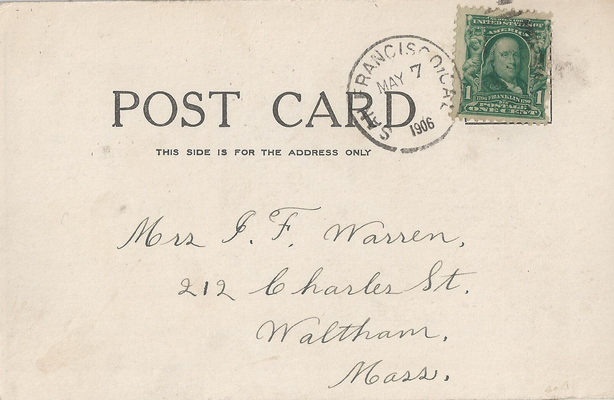 SAN FRANCISCO, CAL.
MAY 7
1906
UNITED STATES OF
AMERICA
1 FRANKLIN 1
POSTAGE
ONE CENT
POST CARD
THIS SIDE IS FOR THE ADDRESS ONLY
Mrs J. F. Warren,
212 Charles St.
Waltham,
Mass.